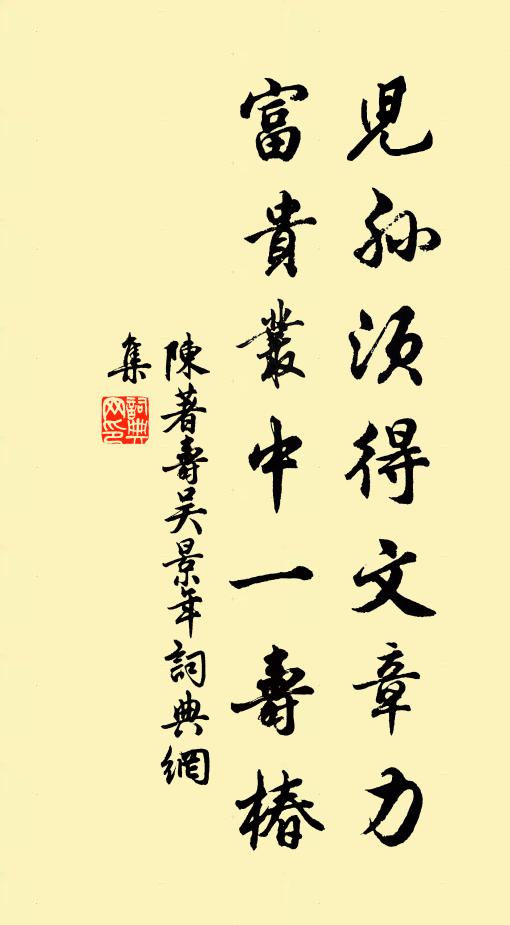 兒孫須得文章力
富貴叢中一壽椿
陳著壽吳景年詞典網
集
詞典
网印